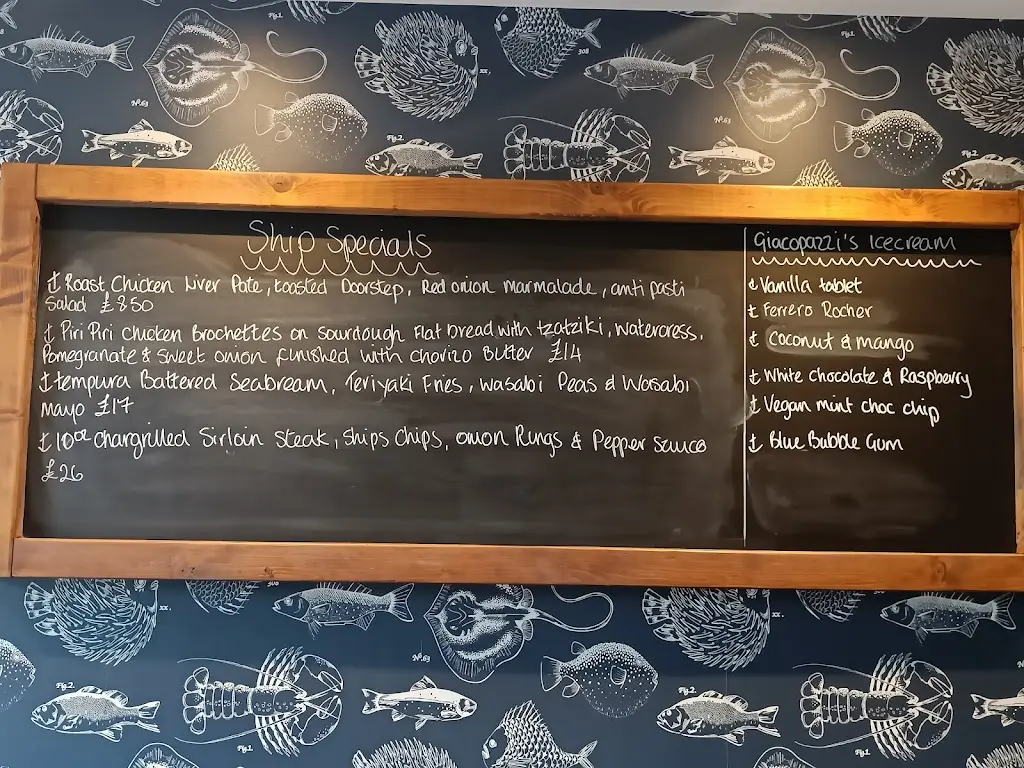 Ship Specials
Roast Chicken Liver Pate, toasted Doorstep, Red onion marmalade, anti pasti
Salad £8.50
Piri Piri Chicken Brochettes on sourdough Flat bread with tzatziki, watercress,
Pomegranate & sweet onion finished with chorizo Butter £14
tempura Battered Seabream, Teriyaki Fries, wasabi Peas & Wasabi
Mayo £17
10oz chargrilled Sirloin Steak, ships chips, onion Rings & Pepper sauce
£26
Giacopazzi's Icecream
Vanilla tablet
Ferrero Rocher
Coconut & mango
White Chocolate & Raspberry
Vegan mint choc chip
Blue Bubble Gum
Fig.1
Fig.1
308
XX.
Nº.63
Nº.63
Fig.2
Fig.2
XX.
XX.
Nº.63
Fig.2
Fig.2
308
Fig.1
Fig.1